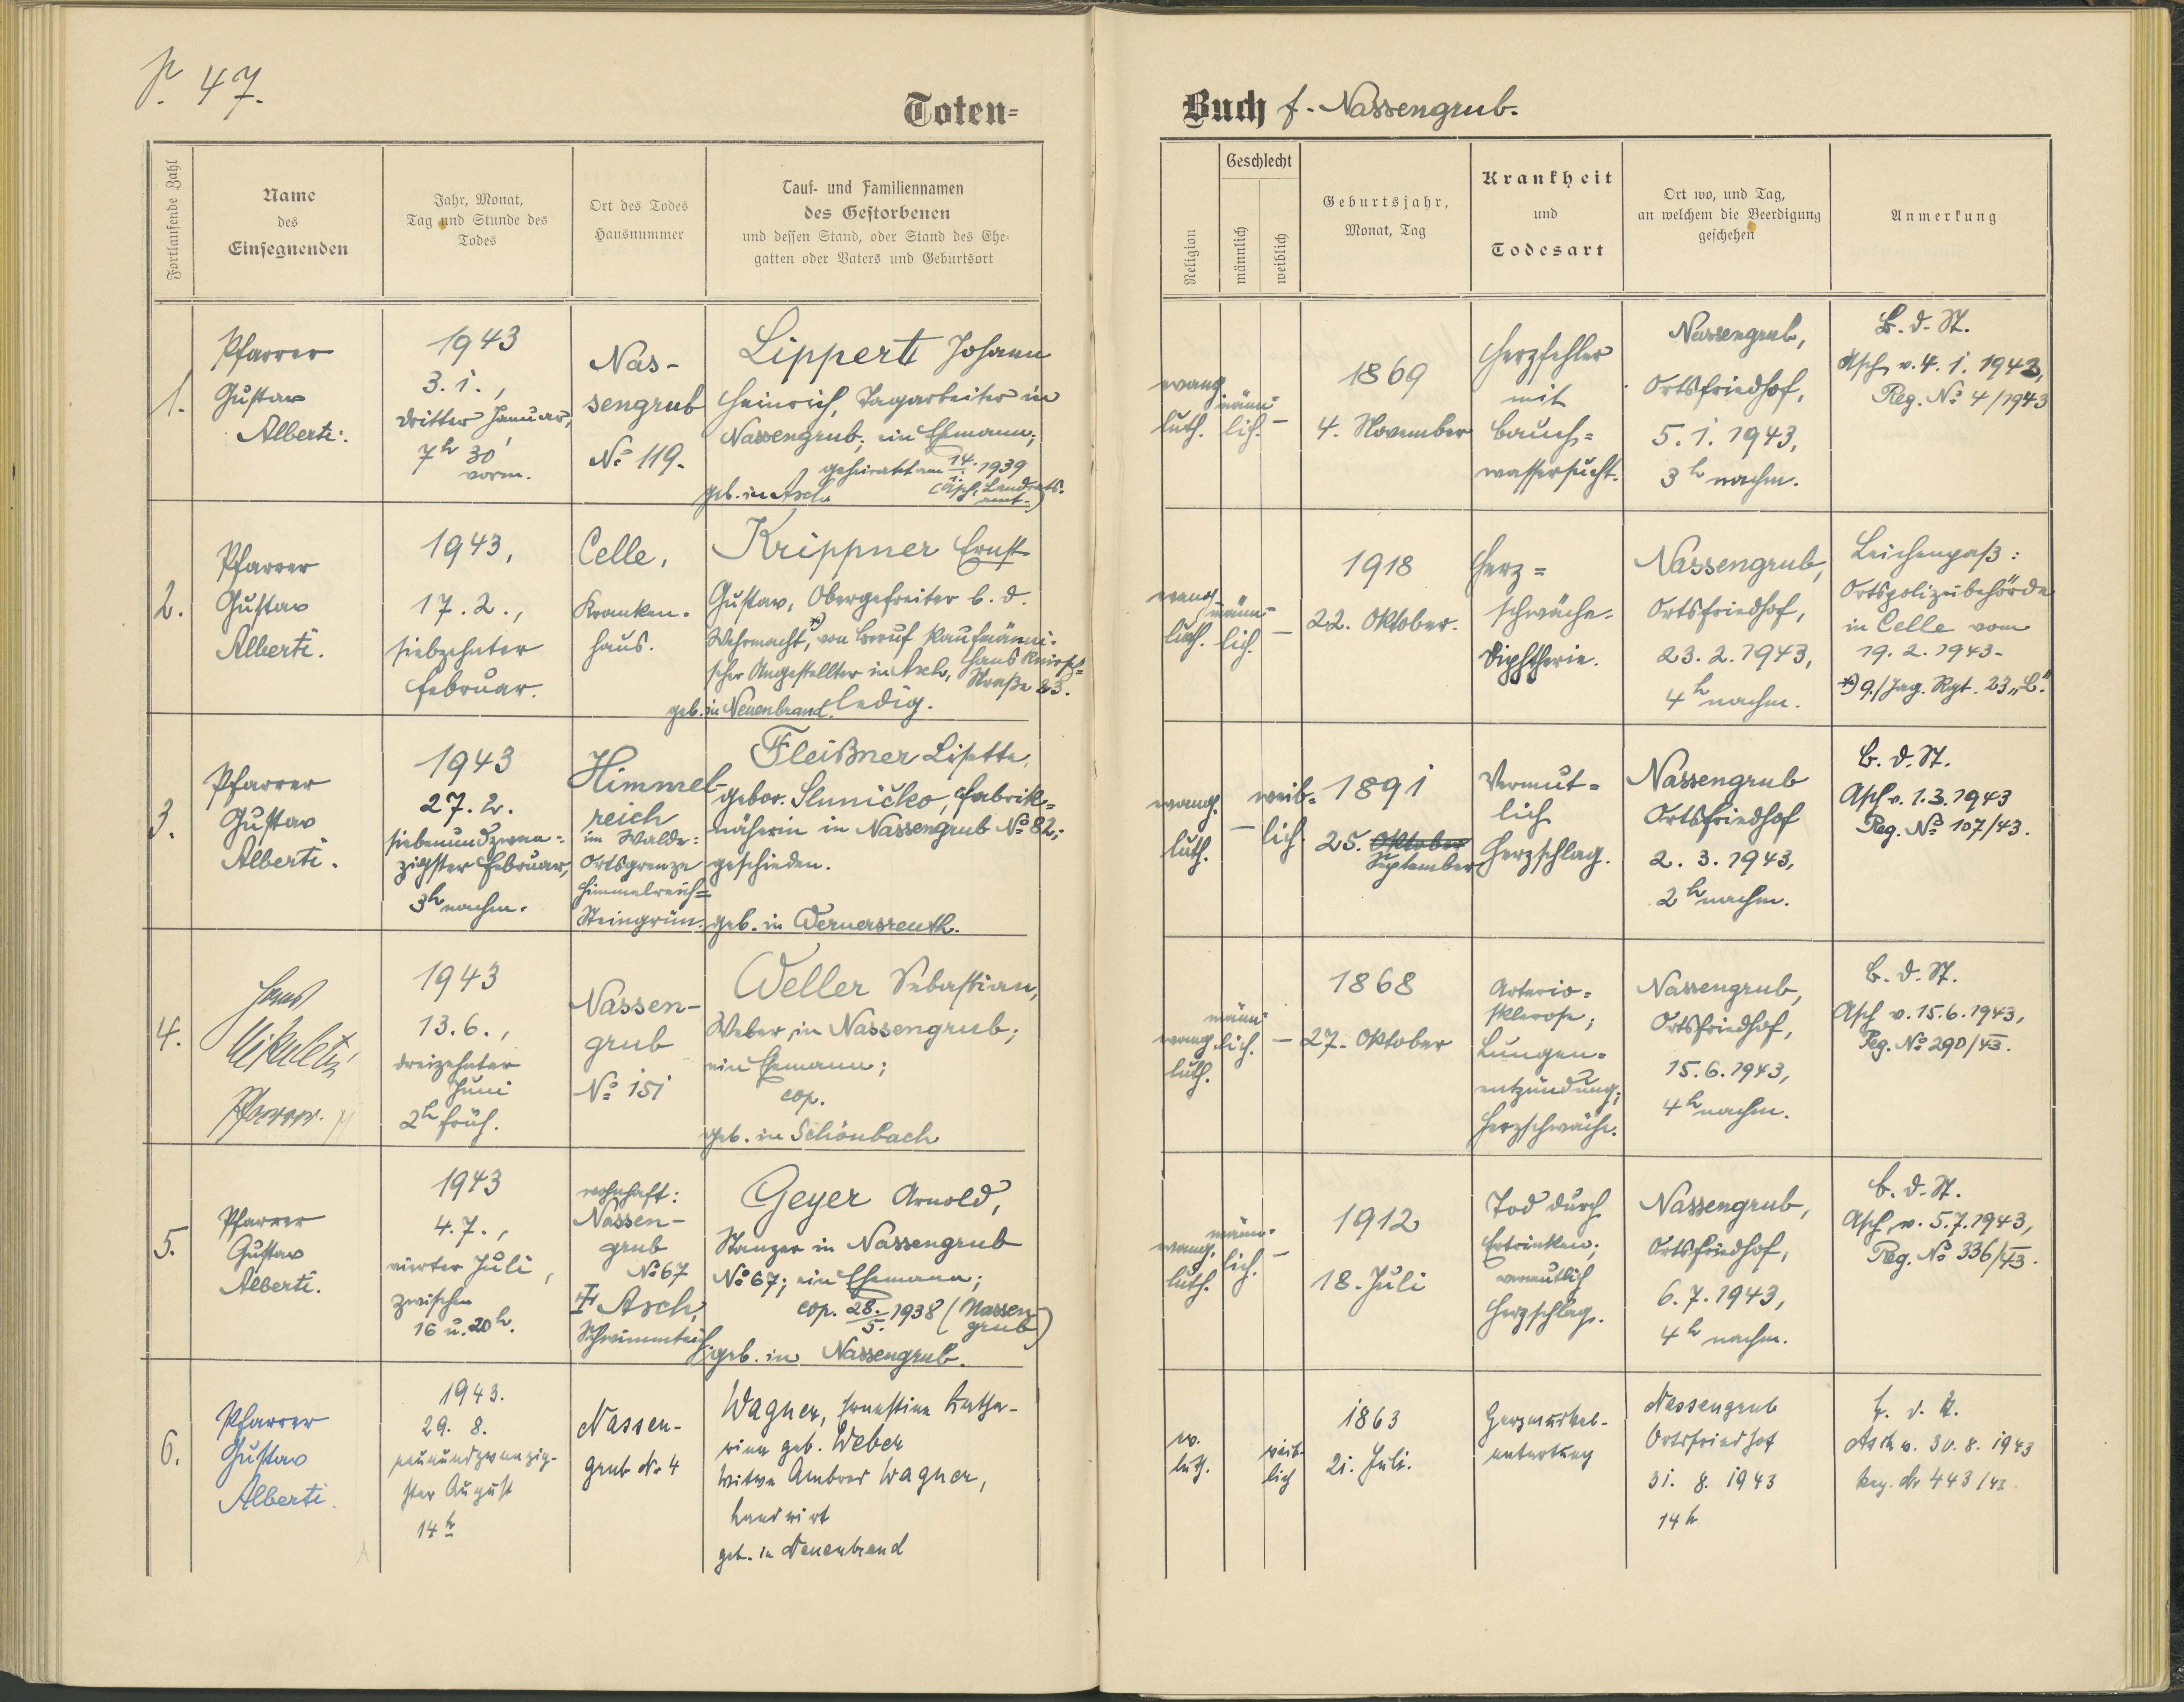 P. 47.
Toten=
Buch f. Nassengrub.
Fortlaufende Zahl
Name
des
Einsegnenden
Jahr, Monat,
Tag und Stunde des
Todes
Ort des Todes
Hausnummer
Tauf- und Familiennamen
des Gestorbenen
und dessen Stand, oder Stand des Ehe-
gatten oder Vaters und Geburtsort
Religion
Geschlecht
männlich
weiblich
Geburtsjahr,
Monat, Tag
Krankheit
und
Todesart
Ort wo, und Tag,
an welchem die Beerdigung
geschehen
Anmerkung
1.
Pfarrer
Gustav
Alberti.
1943
3.1.,
dritter Januar,
7h 30'
vorm.
Nas-
sengrub
No 119.
Lippert Johann
Heinrich, Tagarbeiter in
Nassengrub; ein Ehemann;
geheiratet am 14. 1939
(Asch, Landrats-
amt.)
geb. in Asch
evang.
luth.
männ-
lich.
–
1869
4. November
Herzfehler
mit
Bauch=
wassersucht.
Nassengrub,
Ortsfriedhof,
5.1.1943,
3h nachm.
B. d. St.
Asch v. 4.1.1943,
Reg. No 4/1943
2.
Pfarrer
Gustav
Alberti.
1943,
17.2.,
siebzehnter
Februar.
Celle,
Kranken-
haus.
Krippner Ernst
Gustav, Obergefreiter b. d.
Wehrmacht,*) von Beruf kaufmänni-
scher Angestellter in Asch, Hans Knirsch=
Straße 23.
geb. in Neuenbrand. ledig.
evang.
luth.
männ-
lich.
–
1918
22. Oktober.
Herz=
schwäche.
Diphtherie.
Nassengrub,
Ortsfriedhof,
23.2.1943,
4h nachm.
Leichenpaß:
Ortspolizeibehörde
in Celle vom
19.2.1943.
*) 9./Jag. Rgt. 23 „L".
3.
Pfarrer
Gustav
Alberti.
1943
27.2.
siebenundzwan=
zigster Februar,
3h nachm.
Himmel-
reich
im Walde:
Ortsgrenze
Himmelreich=
Steingrün.
Fleißner Lisette,
gebor. Sluničko, Fabrik=
näherin in Nassengrub No 82;
geschieden.
geb. in Wernersreuth.
evang.
luth.
–
weib=
lich.
1891
25. Oktober
September
Vermut=
lich
Herzschlag.
Nassengrub
Ortsfriedhof
2.3.1943,
2h nachm.
B. d. St.
Asch v. 1.3.1943
Reg. No 107/43.
4.
Hans
Mikuletz
Pfarrer.
1943
13.6.,
dreizehnter
Juni
2h früh.
Nassen-
grub
No 151
Weller Sebastian,
Weber in Nassengrub;
ein Ehemann;
cop.
geb. in Schönbach
evang.
luth.
männ-
lich.
–
1868
27. Oktober
Arterio=
sklerose;
Lungen=
entzündung;
Herzschwäche.
Nassengrub,
Ortsfriedhof,
15.6.1943,
4h nachm.
B. d. St.
Asch v. 15.6.1943,
Reg. No 290/43.
5.
Pfarrer
Gustav
Alberti.
1943
4.7.,
vierter Juli,
zwischen
16 u. 20h.
wohnhaft:
Nassen-
grub
No 67
‡ Asch,
Schwimmteich
Geyer Arnold,
Stanzer in Nassengrub
No 67; ein Ehemann;
cop. 28./5. 1938 (Nassen-
grub)
geb. in Nassengrub.
evang.
luth.
männ-
lich.
–
1912
18. Juli
Tod durch
Ertrinken;
vermutlich
Herzschlag.
Nassengrub,
Ortsfriedhof,
6.7.1943,
4h nachm.
B. d. St.
Asch, v. 5.7.1943,
Reg. No 336/43.
6.
Pfarrer
Gustav
Alberti.
1943.
29. 8.
neunundzwanzig-
ster August
14h
Nassen-
grub Nr 4
Wagner, Ernestine Katha-
rina geb. Weber
Witwe Ambros Wagner,
Landwirt
geb. in Neuenbrand
ev.
luth.
weib-
lich
1863
21. Juli.
Herzmuskel-
entartung
Nassengrub
Ortsfriedhof
31. 8. 1943
14h
B. d. St.
Asch v. 30. 8. 1943
Reg. Nr 443/43.